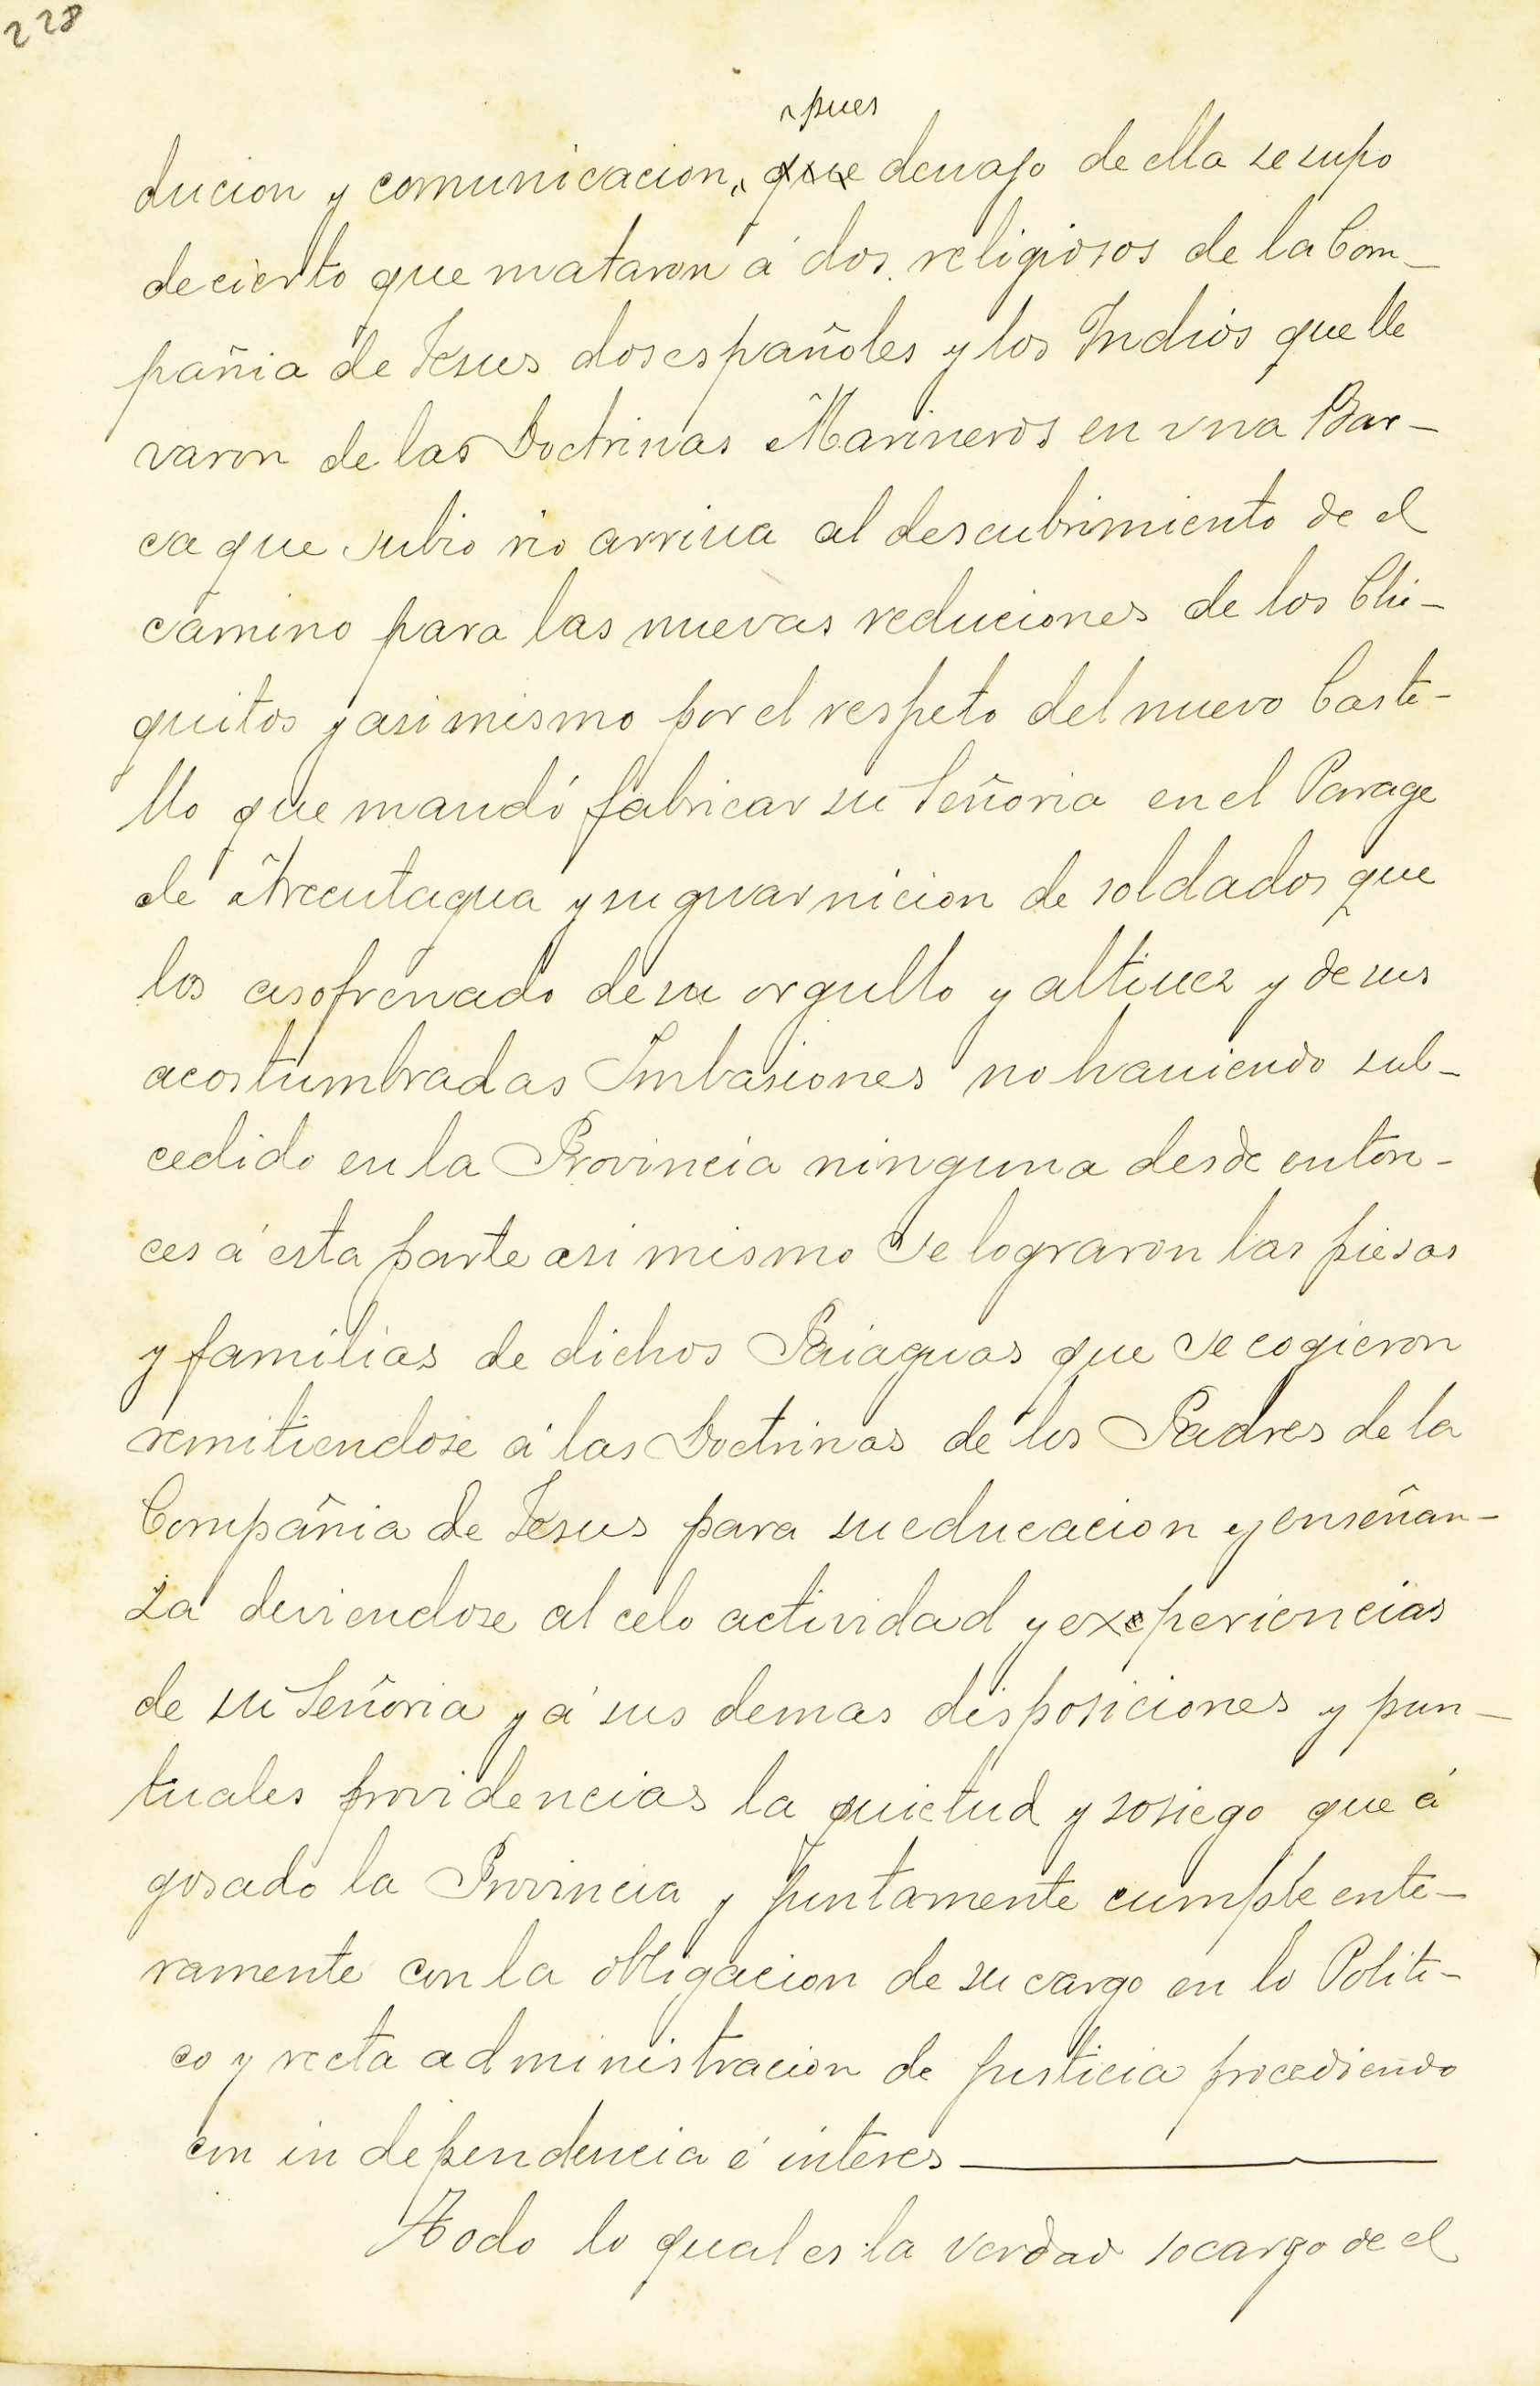 228
pues
ducion y comunicacion, que devajo de ella se supo
de cierto que mataron á dos religiosos de la Com-
pañia de Jesus dos españoles y los Indios que lle
varon de las Doctrinas Marineros en vna Bar-
ca que subio rio arriua al descubrimiento de el
camino para las nuevas reduciones de los Chi-
quitos y asi mismo por el respeto del nuevo Casti-
llo que mandó fabricar su Señoria en el Parage
de Arecutagua y su guarnicion de soldados que
los a sofrenado de su orgullo y altiues y de sus
acostumbradas Imbasiones no hauiendo sub-
cedido en la Provincia ninguna desde enton-
ces á esta parte asi mismo se lograron las piesas
y familias de dichos Paiaguas que se cogieron
remitiendose á las Doctrinas de los Padres de la
Compañia de Jesus para su educacion y enseñan-
za deviendose al celo actividad y experiencias
de su Señoria y á sus demas disposiciones y pun-
tuales providencias la quietud y sosiego que á
gosado la Provincia y juntamente cumple ente-
ramente con la obligacion de su cargo en lo Politi-
co y recta administracion de justicia procediendo
con independencia é interes
Todo lo qual es la verdad so cargo de el